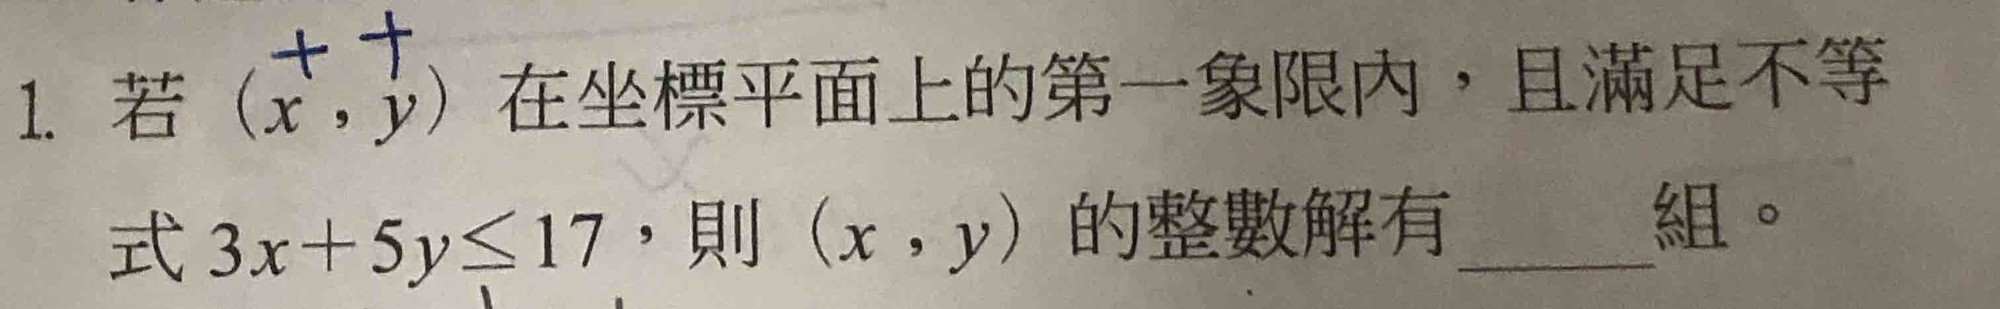 + +
1. 若（x，y）在坐標平面上的第一象限內，且滿足不等
式 3x＋5y≤17，則（x，y）的整數解有＿＿＿組。